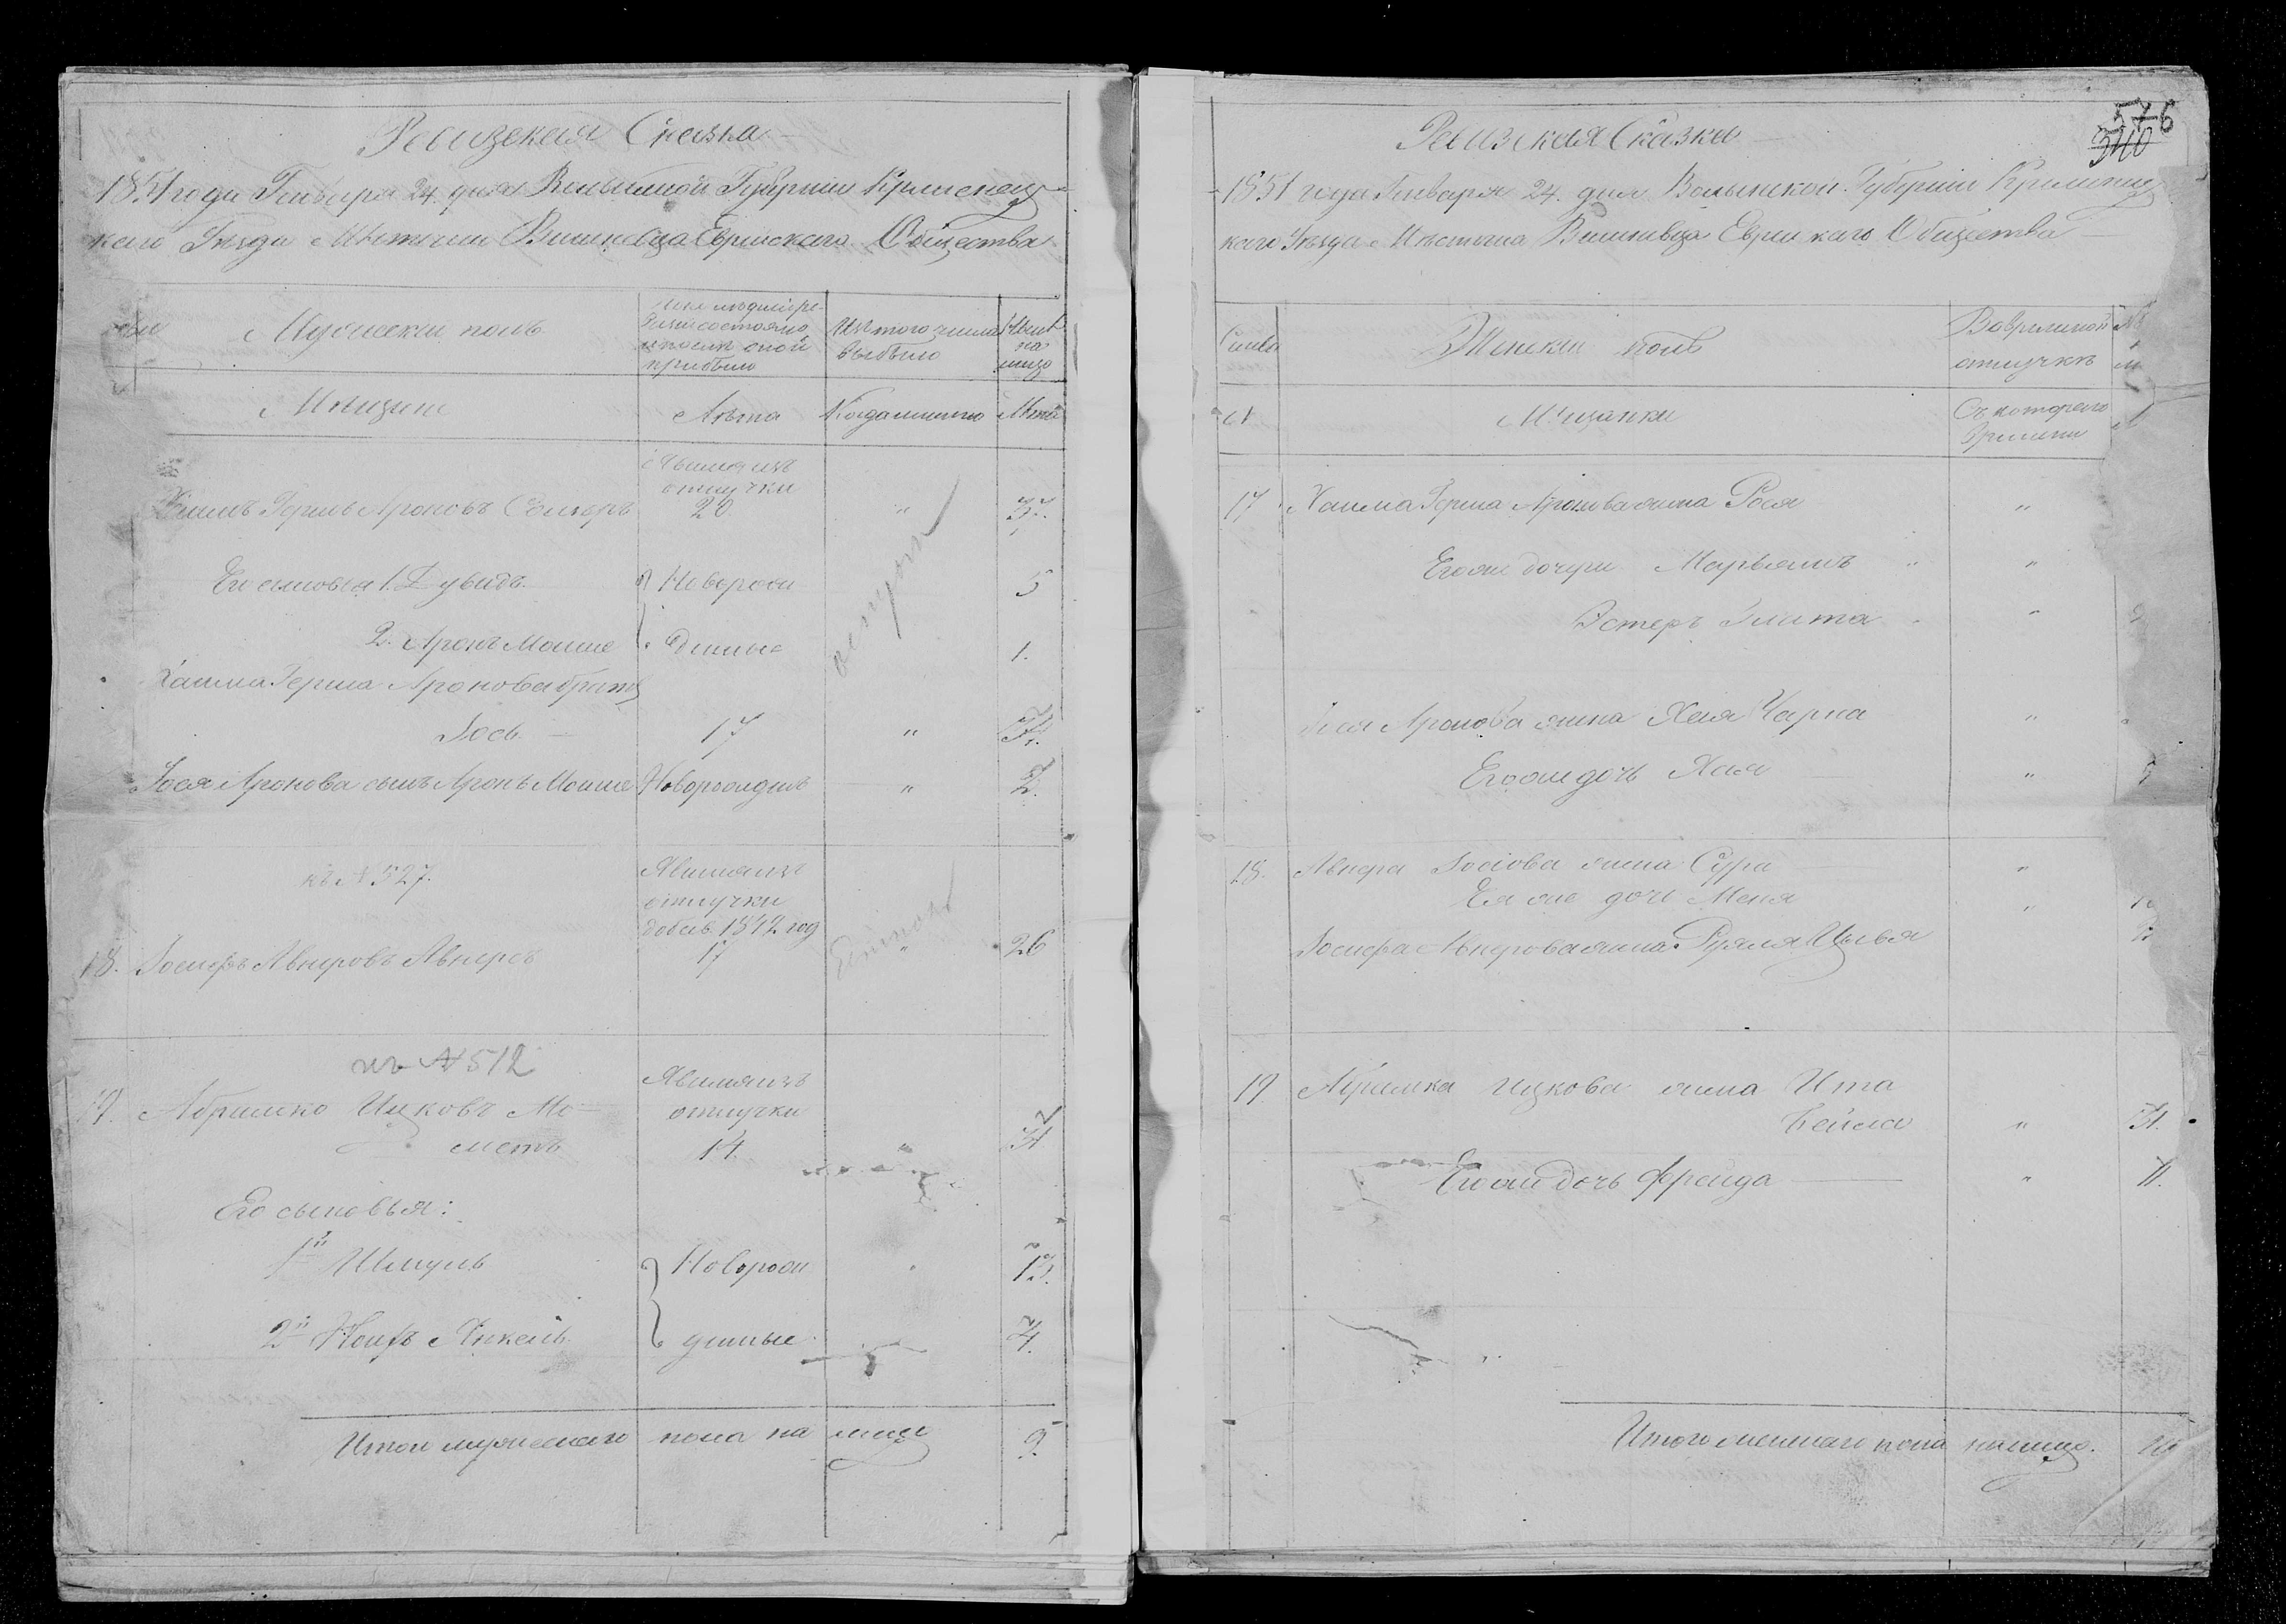 Ревизская Сказка
1851 года Генваря 24. дня Волынской Губернии Кременец-
каго Уѣзда Мѣстечка Вишневца Еврейскаго Общества
Мужескій полъ
По последней ре-
визіи состояло
и после оной
прибыло
Изъ того числа
выбыло
Ныне
на
лицо
Мѣщане
Лѣта
Когда именно
Лѣта
Явился изъ
отлучки
Хаимъ Гершъ Ароновъ
20 " 37.
Его сыновья 1. Дувидъ
Новорож
5
2. Аронъ Мошке
денные
1.
Хаима Герша Аронова братъ
Іось 17 " 34.
Іося Аронова сынъ Аронъ Мошке Новорожденъ " 2.
къ N 527.
Явился изъ
отлучки
добав. 1842 год
18. Іосифъ Авнеровъ Авнеръ 17 " 26
къ N 512
Явился изъ
19. Абрамко Ицковъ Мо-
отлучки
14 " 31
Его сыновья:
1й Шмуль
Новорож
13.
2й Янкель
денные
4.
Итого мужескаго пола на лицо 9.
576
340
Ревизская Сказка
1851 года Генваря 24. дня Волынской Губерніи Кременец
каго Уѣзда Мѣстечка Вишневца Еврейскаго Общества
Семьи
Женскій полъ
Во временной
отлучкѣ
N
Мѣщанки
Съ котораго
времени
17 Хаима Герша Аронова жена Рося "
Его же дочери Марьямъ "
Эстеръ Гита "
Іося Аронова жена Хая Чарна "
Его же дочь Хая "
18. Авнера Іосіова жена Сура "
Ея же дочь Меня "
Іосифа Авнерова жена Рухля Цывья
19. Абрамка Ицкова жена Ита
Бейла " 31.
Его же дочь Фрейда " 11.
Итого женскаго пола налицо. 10